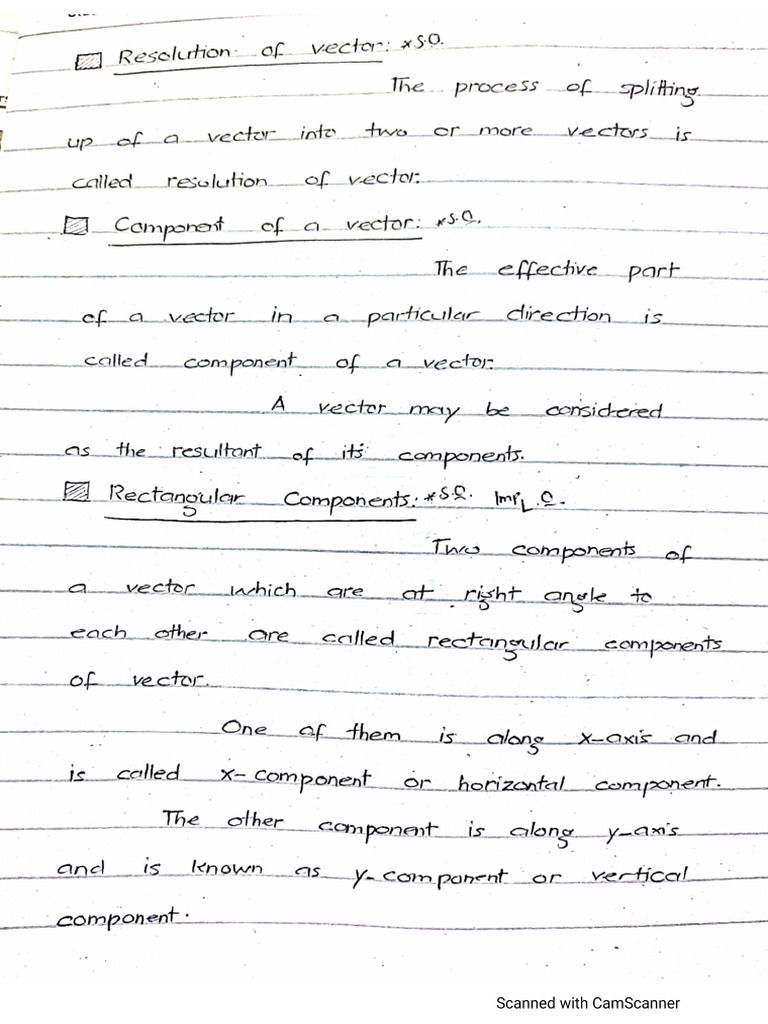 Resolution of vector: *S.Q.
The process of splitting
up of a vector into two or more vectors is
called resolution of vector.
Component of a vector: *S.Q.
The effective part
of a vector in a particular direction is
called component of a vector.
A vector may be considered
as the resultant of its components.
Rectangular Components: *S.Q. Imp L.Q.
Two components of
a vector which are at right angle to
each other are called rectangular components
of vector.
One of them is along x-axis and
is called x-component or horizontal component.
The other component is along y-axis
and is known as y-component or vertical
component.
Scanned with CamScanner